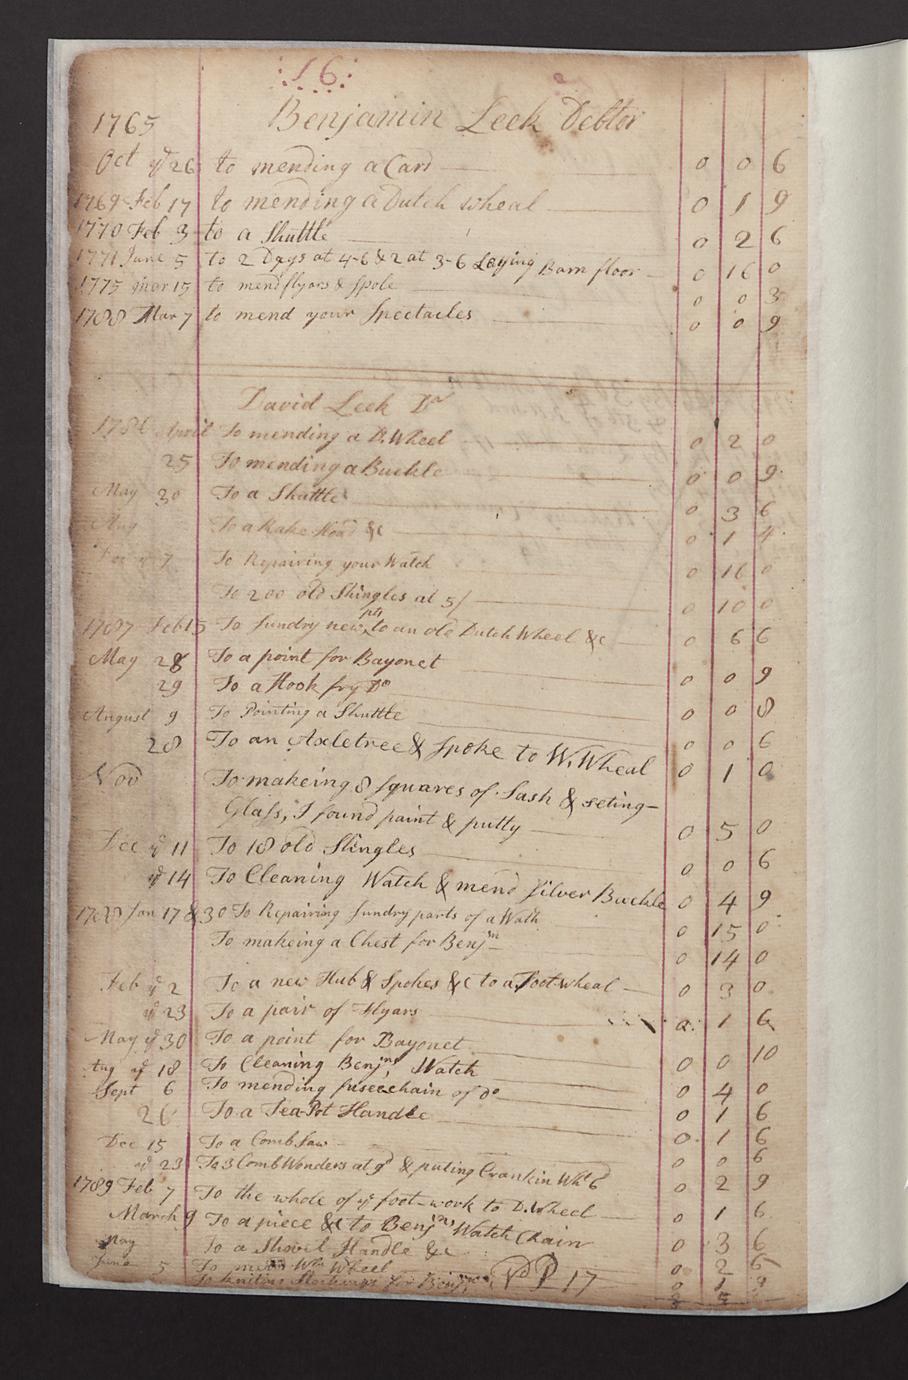 :16:
Benjamin Leek Debtor
1765
Oct yd 26 to mending a Card 0 0 6
1769 Feb 17 to mending a Dutch wheal 0 1 9
1770 Feb 3 to a Shuttle 0 2 6
1771 June 5 to 2 Days at 4-6 & 2 at 3-6 Laying Barn floor 0 16 0
1775 Mar 15 to mend flyars & Spole 0 0 3
1788 Mar 7 to mend your Spectacles 0 0 9
David Leek Dr
1786 April To mending a D. Wheel 0 2 0
25 To mending a Buckle 0 0 9
May 30 To a Shuttle 0 3 6
Aug To a Rake Head &c 0 1 4
7 To Repairing your Watch 0 16 0
To 200 old Shingles at 5/ 0 10 0
1787 Feb 15 To Sundry new pts to an old Dutch Wheel &c 0 6 6
May 28 To a point for Bayonet 0 0 9
29 To a Hook for Do 0 0 8
August 9 To Pointing a Shuttle 0 0 6
28 To an Axletree & Spoke to W. Wheal 0 1 0
Nov To makeing 8 squares of Sash & seting-
Glass, I found paint & putty 0 5 0
Dec yd 11 To 18 old Shingles 0 0 6
yd 14 To Cleaning Watch & mend Silver Buckle 0 4 9
1788 Jan 17 & 30 To Repairing Sundry parts of a Wath 0 15 0
To makeing a Chest for Benjm 0 14 0
Feb yd 2 To a new Hub & Spokes &c to a Foot-wheal 0 3 0
yd 23 To a pair of Flyars 0 1 6
May yd 30 To a point for Bayonet 0 0 10
Aug yd 18 To Cleaning Benjms Watch 0 4 0
Sept 6 To mending fusee chain of do 0 1 6
26 To a Tea-Pot Handle 0 1 6
Dec 15 To a Comb Saw 0 0 6
yd 23 To 3 Comb Wonders at 9d & puting Crank in Whl 6 0 2 9
1789 Feb 7 To the whole of ye foot-work to D. Wheel 0 1 6
March 9 To a piece &c to Benjms Watch Chain 0 3 6
May To a Shovel Handle &c 0 2 6
June 5 To mend Wm Wheel 0 1 9
To kniting Stockings for Benjm
Pd P 17